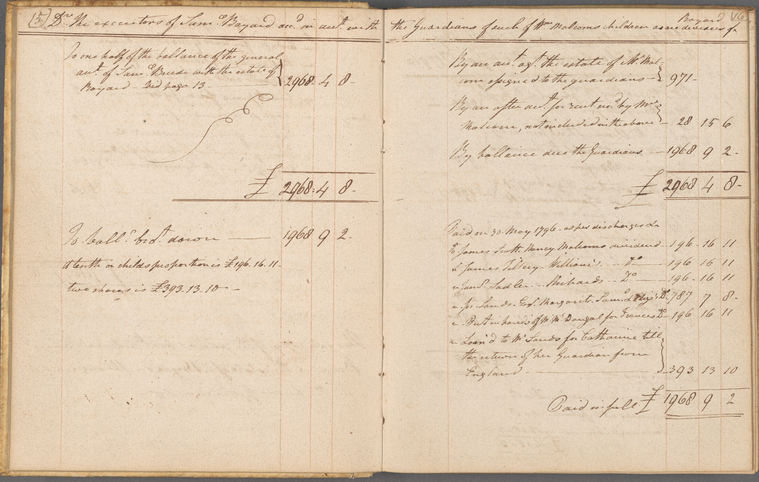 (5) Dr. The executors of Saml. Bayard in act. with
To one half of the ballance of the general
act. of Saml. with the estate of
Bayard page 13 2968 - 4 - 8 -
£ 2968 - 4 - 8 -
To ballc. brot. down — 1968 9 2 -
A tenth or childs proportion is £196. 16. 11.
two shares is £393. 13. 10 —
the Guardians of such of Wm. Malcoms children as are devisees of Bayard
By an act. agt. the estate of Mr. Mal-
com assigned to the guardians — 971 -
By an after act. for rent by Mr.
Malcom, not included in the above - 28 15 6
By ballance due the Guardians — 1968 9 2 -
£ 2968 4 8 -
Paid on 30 May 1796 as discharges
to James Scott Henry Malcoms dividend - 196 - 16 11
James Tillery William's Do - 196 16 11
Sadler - Richards - Do - 196 - 16 11
Jos. Sands Margaret, Saml. & Do - 787 7 8 -
Put in hands of Mr. McDougal for Frances Do - 196 16 11
Loan'd to Mr. Sands for Catharine till
the return of her Guardian from
England — 393 13 10
Paid in full £ 1968 9 2